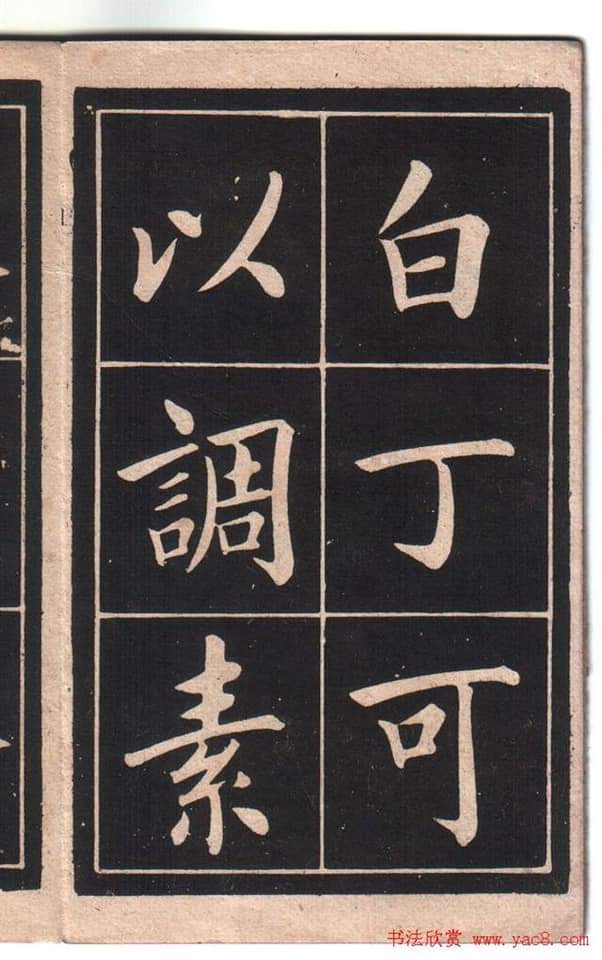 白丁可
以調素
书法欣赏 www.yac8.com